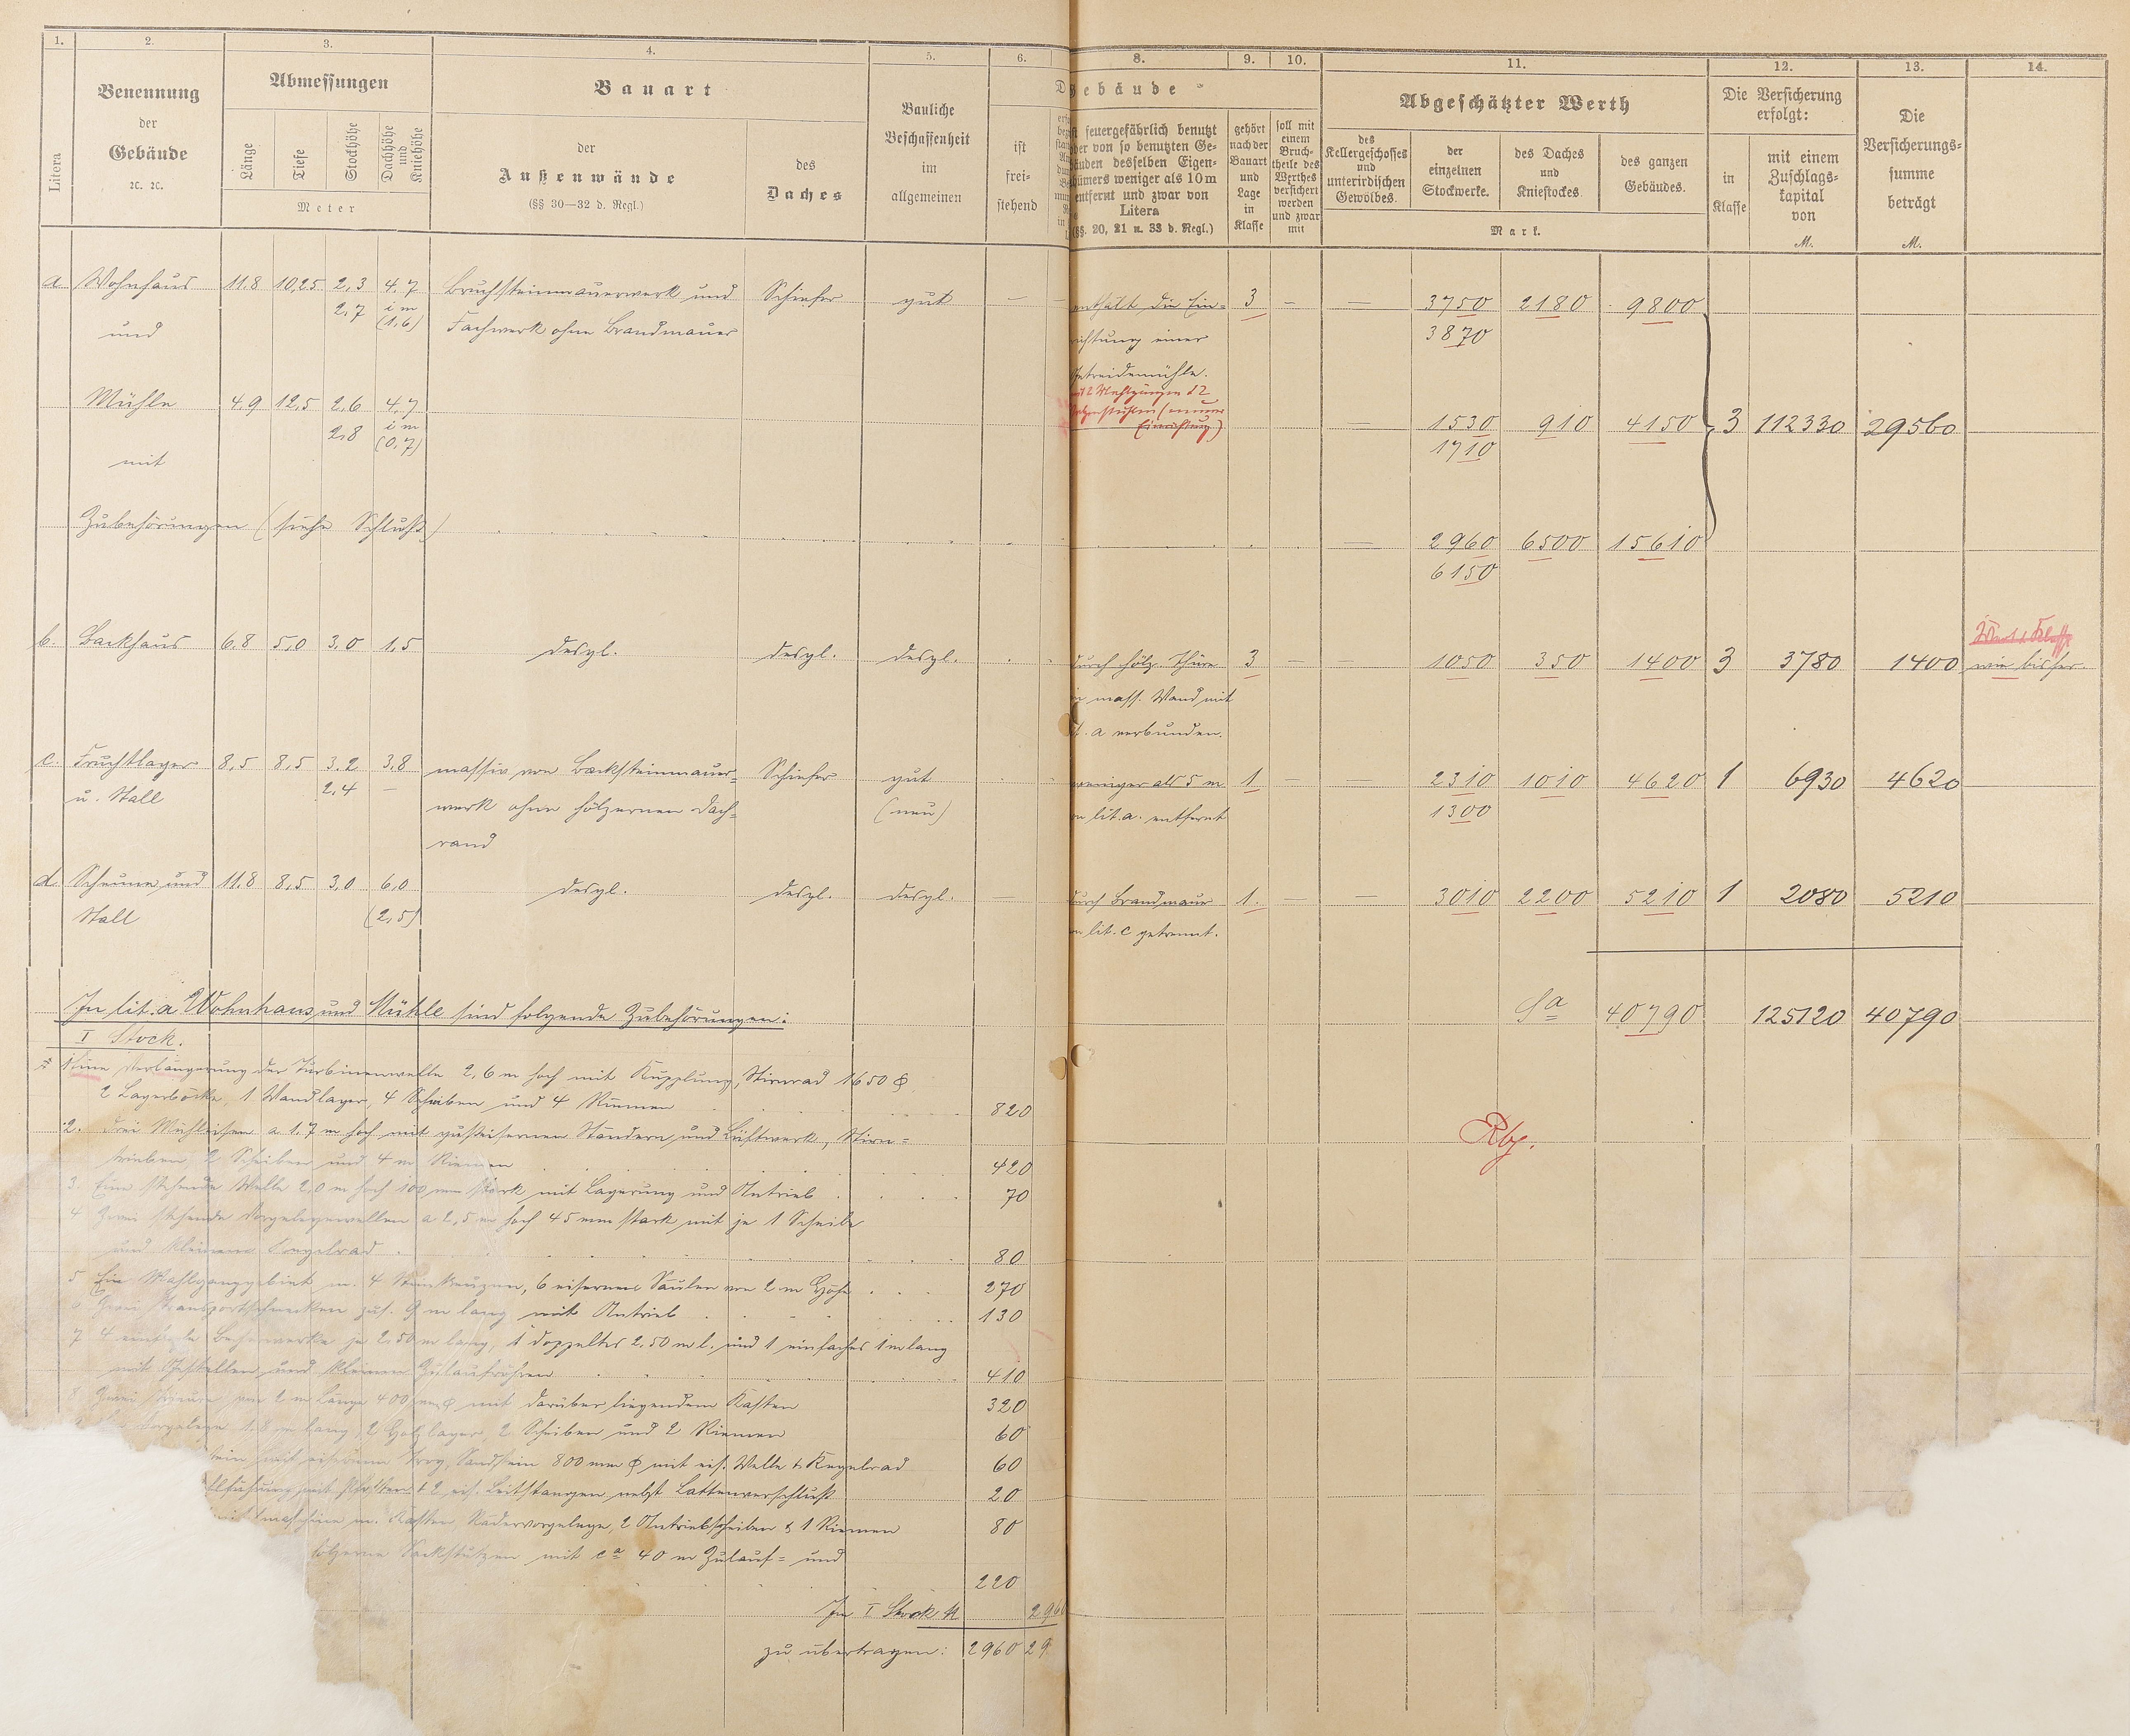 1. 2. 3. 4. 5. 6. 8. 9. 10. 11. 12. 13. 14.
Litera
Benennung
der
Gebäude
ꝛc. ꝛc.
Abmessungen
Länge
Tiefe
Stockhöhe
Dachhöhe
und
Kniehöhe
Meter
Bauart
der
Außenwände
(§§ 30—32 d. Regl.)
des
Daches
Bauliche
Beschaffenheit
im
allgemeinen
ist
frei-
stehend
Gebäude
ist feuergefährlich benutzt
oder von so benutzten Ge-
bäuden desselben Eigen-
tümers weniger als 10 m
entfernt und zwar von
Litera
(§§. 20, 21 u. 33 d. Regl.)
gehört
nach der
Bauart
und
Lage
in
Klasse
soll mit
einem
Bruch-
theile des
Werthes
versichert
werden
und zwar
mit
Abgeschätzter Werth
des
Kellergeschosses
und
unterirdischen
Gewölbes.
der
einzelnen
Stockwerke.
des Daches
und
Kniestockes.
des ganzen
Gebäudes.
Mark.
Die Versicherung
erfolgt:
in
Klasse
mit einem
Zuschlags-
kapital
von
M.
Die
Versicherungs-
summe
beträgt
M.
a Wohnhaus 11.8 10,25 2,3 4.7 Bruchsteinmauerwerk und Schiefer gut — enthält die Ein- 3 — — 3750 2180 9800
2,7 i m
(1,6)
und Fachwerk ohne Brandmauer richtung einer 3870
Getreidemühle.
mit 2 Mahlgängen & 2
Walzenstühlen (neuer
Einrichtung)
Mühle 4.9 12,5 2,6 4.7 — 1530 910 4150 3 112330 29560
2,8 i m
(0,7)
mit 1710
Zubehörungen (siehe Schluß) — 2960 6500 15610
6150
b. Backhaus 6.8 5,0 3,0 1,5 desgl. desgl. desgl. durch hölz. Thüre 3 — — 1050 350 1400 3 3780 1400 wie bisher
in mass. Wand mit
lit. a verbunden.
c. Fruchtlager 8,5 8,5 3.2 3,8 massiv von Backsteinmauer- Schiefer gut weniger als 5 m 1 — — 2310 1010 4620 1 6930 4620
u. Stall 2,4 — werk ohne hölzernen Dach- (neu) von lit. a. entfernt 1300
rand
d. Scheune und 11.8 8,5 3,0 6,0 desgl. desgl. desgl. — durch Brandmauer 1. — — 3010 2200 5210 1 2080 5210
Stall (2,5) von lit. c getrennt.
In lit. a Wohnhaus und Mühle sind folgende Zubehörungen: Sa 40790 125120 40790
I Stock.
1. Eine Verlängerung der Turbinenwelle 2,6 m hoch mit Kupplung, Stirnrad 1650 φ
2 Lagerböcke, 1 Wandlager, 4 Scheiben und 4 Riemen 820
2. Drei Mühleisen a 1.7 m hoch mit gußeisernen Ständern und Lüftwerk, Stirn-
trieben, 2 Scheiben und 4 m Riemen 420
Rbg.
3. Eine stehende Welle 2,0 m hoch 100 mm stark mit Lagerung und Antrieb 70
4 Zwei stehende Vorgelegewellen a 2,5 m hoch 45 mm stark mit je 1 Scheibe
und kleinem Kegelrad 80
5 Ein Mahlganggebiet m. 4 Steinkreuzen, 6 eisernen Säulen von 2 m Höhe 270
6 Zwei Transportschnecken zus. 9 m lang mit Antrieb 130
7 4 einfache Becherwerke je 2.50 m lang, 1 doppeltes 2.50 m l. und 1 einfaches 1 m lang
mit Gestellen und kleinen Zulaufröhren 410
8 Zwei von 2 m Länge 400 mm φ mit darüber liegendem Kasten 320
Vorgelege 1.8 m lang, 2 Holzlager, 2 Scheiben und 2 Riemen 60
stein mit eisernem Trog, Sandstein 800 mm φ mit eis. Welle & Kegelrad 60
mit Pfosten & 2 eis. Leitstangen nebst Lattenverschluß 20
maschine m. Kasten, Rädervorgelege, 2 Antriebscheiben & 1 Riemen 80
hölzerne Sackstutzen mit ca 40 m Zulauf- und
220
In I Stock M 2960
zu übertragen: 2960 29